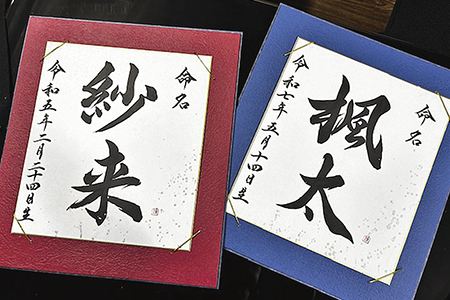 命名
紗来
令和五年二月二十四日生
命名
楓太
令和七年五月十四日生